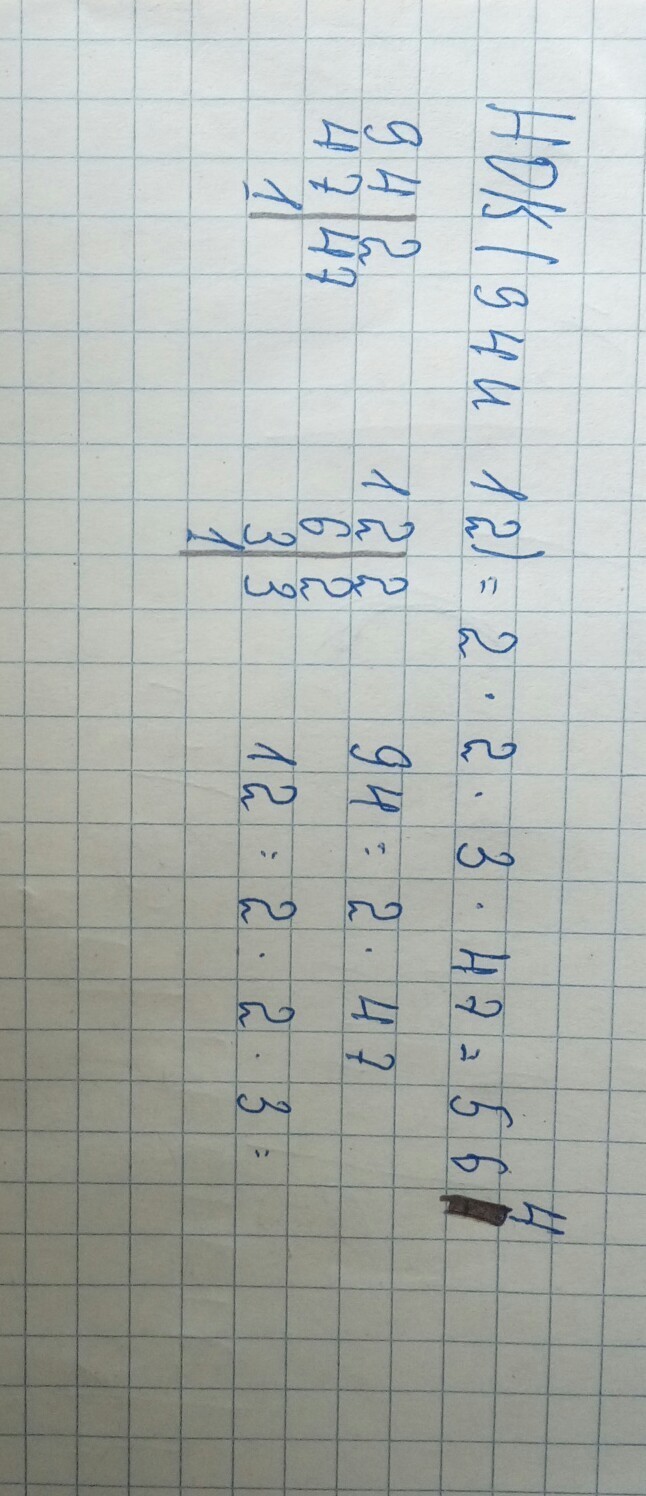 НОК (94 и 12) = 2 · 2 · 3 · 47 = 564
94 | 2
47 | 47
1
12 | 2
6 | 2
3 | 3
1
94 = 2 · 47
12 = 2 · 2 · 3 =